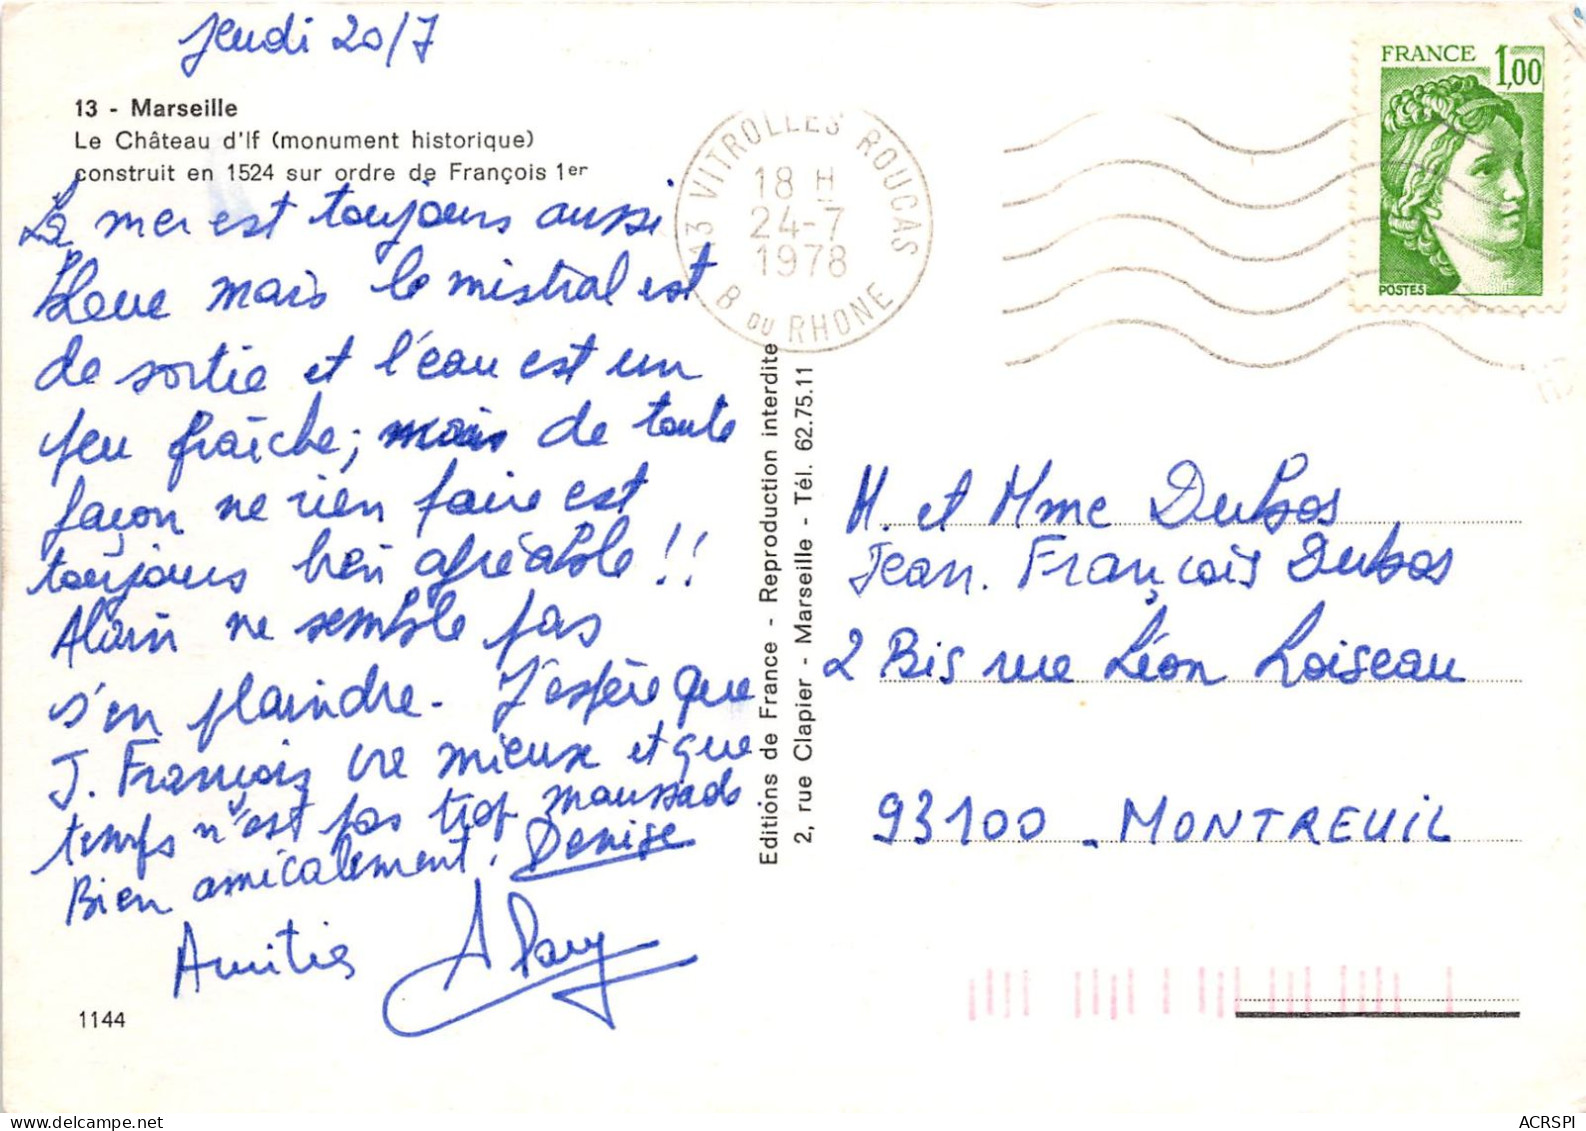 Jeudi 20/7
13 - Marseille
Le Château d'If (monument historique)
construit en 1524 sur ordre de François 1er
La mer est toujours aussi
bleue mais le mistral est
de sortie et l'eau est un
peu fraîche; mais de toute
façon ne rien faire est
toujours bien agréable !!
Alain ne semble pas
s'en plaindre. J'espère que
J. François va mieux et que
temps n'est pas trop maussade
Bien amicalement. Denise
Amitiés
1144
Editions de France - Reproduction interdite
2, rue Clapier - Marseille - Tél. 62.75.11
13 VITROLLES ROUCAS
18 H
24-7
1978
B DU RHONE
FRANCE 1,00
POSTES
M. et Mme Dubos
Jean. François Dubos
2 Bis rue Léon Loiseau
93100 - MONTREUIL
ACRSPI